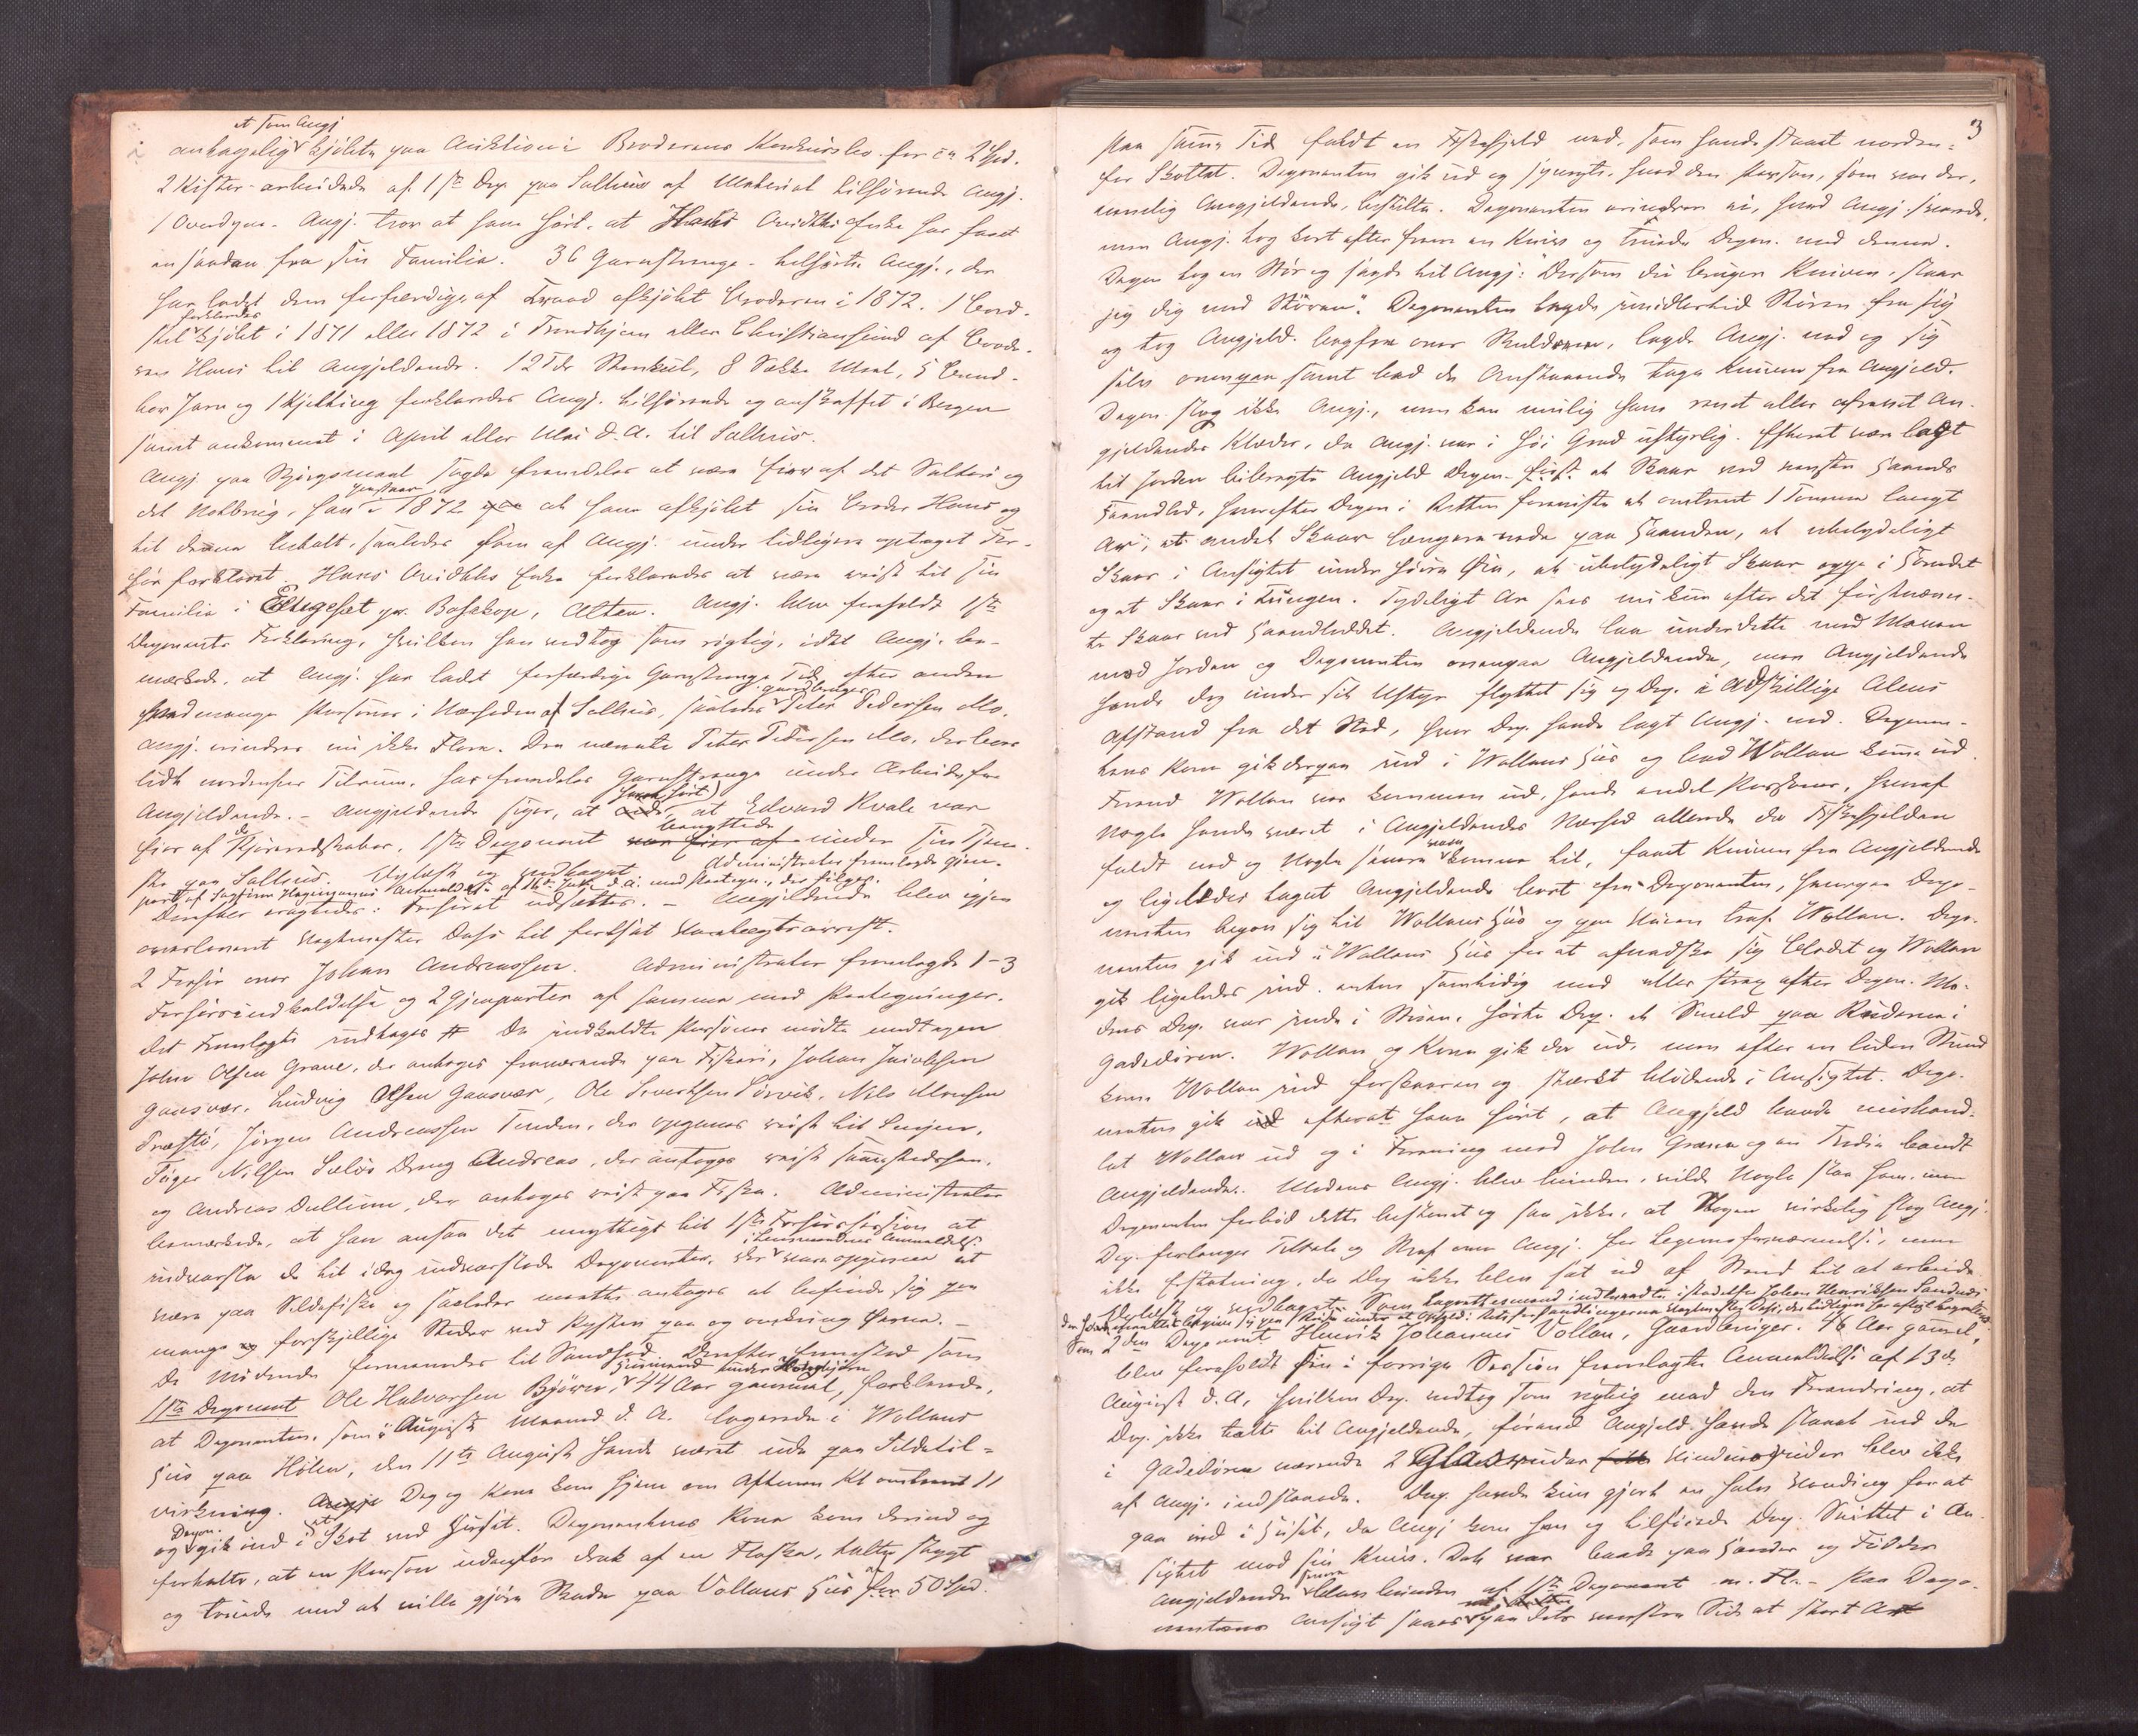 at som Angj
antagelig kjøbte paa Auktion i Broderens Konkursbo for ca 2 Spd.
2 Kister - arbeidede af 1ste Dep. paa Salhus af Material tilhørende Angj.
1 Overdyne - Angj. tror at have hørt, at Hans Enke har faaet
en saadan fra sin Familie. 36 Garnstrenge - tilhørte Angj., der
har ladet dem forfærdige af Traad afkjøbt Broderen i 1872. 1 Bord-
forklaredes
kjøbt i 1871 eller 1872 i Trondhjem eller Christiansund af Brode-
ren Hans til Angjeldende. 12 Tdr Stenkul, 8 Sække Meel, 5 Bund-
ter Jern og 1 Kjetting forklaredes Angj. tilhørende og anskaffet i Bergen
samt ankommet i April eller Mai d. A. til Salhus.
Angj. paa Spørgsmaal sagde fremdeles at være Eier af det Salteri og
det Notbrug, han i 1872 at have afkjøbt sin Broder Hans og
til denne betalt, saaledes som af Angj. under tidligere optaget For-
hør forklaret. Hans Enke forklaredes at være reist til sin
Familie i pr. Bosekop, Alten. Angj. blev foreholdt 1ste
Deponents Forklaring, hvilken han vedtog som rigtig, idet Angj. be-
mærkede, at Angj. har ladet forfærdige Garnstrenge Tid efter anden
hos mange Personer i Nærheden af Salhus, saaledes Gaardbruger Peter Pedersen Mo.
Angj. erindrer nu ikke Flere. Den nævnte Peter Pedersen Mo, der boer
lidt nordenfor Tilrum, har fremdeles Garnstrenge under Arbeide for
Angjeldende. - Angjeldende siger, at have hørt, at Edvard Kvale var
Eier af de Kjøreredskaber, 1ste Deponent benyttede under sin Tjene-
ste paa Salhus. Oplæst og vedtaget. Administrator fremlagde Gjen-
part af Anmeldelse af 16de Juli d. A. med Paategn., der følger.
Derefter eragtedes: Forhøret udsættes. - Angjeldende blev igjen
overleveret Vagtmester Dass til fortsat Varetægtsarrest.
2 Forhør over Johan Andreassen. Administrator fremlagde 1-3
Forhørsindkaldelse og 2 Gjenparter af samme med Paategninger.
Det Fremlagte indtages # De indkaldte Personer mødte undtagen
John Olsen Grane, der antoges fraværende paa Fiskeri, Johan Jacobsen
Gaasvær, Ludvig Olsen Gaasvær, Ole Sivertsen Sørvik, Nils Monsen
Præstø, Jørgen Andreassen Tinden, der opgaves reist til Senjen,
Nilsen Dreng Andreas, der antoges reist sammestedshen,
og Andreas Dullum, der antoges reist paa Fiske. Administrator
bemærkede, at han ansaa det unyttigt til 1ste Forhørssession at
indvarsle de til idag indvarslede Deponenter, der i Lensmandens Anmeldelse vare opgivne at
være paa Sildefiske og saaledes maatte antages at befinde sig paa
mange forskjellige Steder ved Kysten paa og omkring Øerne. -
De Mødende formanedes til Sandhed. Derefter fremstod som
1ste Deponent Ole Halvorsen Bjøren, Husmand under 44 Aar gammel, forklarede,
at Deponenten, som i August Maaned d. A. logerede i Vollans
Hus paa Holen, den 11te August havde været ude paa Sildetil-
virkning. Dep og Kone kom hjem om Aftenen Kl omtrent 11
og Depon. gik ind i et Skot ved Huset. Deponentens Kone kom derind og
fortalte, at en Person udenfor drak af en Flaske, talte stygt
og truede med at ville gjøre Skade paa Vollans Hus for 50 Spd.
3
Paa samme Tid faldt en Fiskehjeld ned, som havde staaet norden-
for Skottet. Deponenten gik ud og spurgte, hvad den Person, som var der,
nemlig Angjeldende, bestilte. Deponenten erindrer ei, hvad Angj. svarede,
men Angj. tog kort efter frem en Kniv og truede Depon. med denne.
Depon tog en Stør og sagde til Angj: "Dersom du bruger Kniven, slaar
jeg dig med Støren". Deponenten lagde imidlertid Støren fra sig
og tog Angjeld. bagfra over Skuldrene, lagde Angj. ned og sig
selv ovenpaa samt bad de Omstaaende tage Kniven fra Angjeld.
Depon. slog ikke Angj., men kan mulig have revet eller afrevet An-
gjeldendes Klæder, da Angj. var i høi Grad ustyrlig. Efterat være lagt
til Jorden bibragte Angjeld Depon. først et Skaar ved venstre Haands
Haandled, hvorefter Depon i Retten foreviste et omtrent 1 Tomme langt
Ar, et andet Skaar længere nede paa Haanden, et ubetydeligt
Skaar i Ansigtet under høire Øie, et ubetydeligt Skaar oppe i Hovedet
og et Skaar i Tungen. Tydeligt Ar saaes nu kun efter det førstnævn-
te Skaar ved Haandleddet. Angjeldende laa under dette med Maven
mod Jorden og Deponenten ovenpaa Angjeldende, men Angjeldende
havde dog under sit Ustyr flyttet sig og Dep. i adskillige Alens
Afstand fra det Sted, hvor Dep. havde lagt Angj. ned. Deponen-
tens Kone gik derpaa ind i Vollans Hus og bad Vollan komme ud.
Førend Vollan var kommen ud, havde andet Personer, hvoraf
Nogle havde været i Angjeldendes Nærhed allerede da Fiskehjelden
faldt ned og Nogle senere vare komne til, faaet Kniven fra Angjeldende
og ligeledes taget Angjeldende bort fra Deponenten, hvorpaa Depo-
nenten begav sig til Vollans Hus og paa Veien traf Vollan. Depo-
nenten gik ind i Vollans Hus for at aftvadske sig Blodet og Vollan
gik ligeledes ind, enten samtidig med eller strax efter Depon. Me-
dens Dep. var inde i Stuen, hørte Dep. et Smeld paa Ruderne i
Gadedøren. Vollan og Kone gik da ud, men efter en liden Stund
kom Vollan ind forskaaren og stærkt blødende i Ansigtet. Depo-
nenten gik ud efterat have hørt, at Angjeld havde mishand-
let Vollan ud og i Forening med John Grane og en Tredie bandt
Angjeldende. Medens Angj. blev bunden, vilde Nogle slaa ham, men
Deponenten forbød dette bestemt og saa ikke, at Nogen virkelig slog Angj.
Dep. forlanger Tiltale og Straf over Angj. for Legemsfornærmelse, men
ikke Erstatning, da Dep ikke blev sat ud af Stand til at arbeide.
Oplæst og vedtaget. Som Lagrettesmand indtraadte istedetfor Johan Henriksen Sandnes,
Vagtmester Dass, der tidligere har aflagt Lagretteseed.
Som 2den Deponent Henrik Johannes Vollan, Gaardbruger. 46 Aar gammel,
blev foreholdt sin i forrige Session fremlagte Anmeldelse af 13de
August d. A., hvilken Dep. vedtog som rigtig med den Forandring, at
Dep. ikke talte til Angjeldende, førend Angjeld. havde slaaet ind de
i Gadedøren værende 2 Glasruder. Vinduesruder blev ikke
af Angj. indslaaede. Dep. havde kun gjort en halv Vending for at
gaa ind i Huset, da Angj kom hen og tilføiede Dep. Snittet i An-
sigtet med sin Kniv. Dep. var baade paa Hænder og Fødder
Angjeldende blev bunden af 1ste Deponent m. Fl. - Paa Depo-
nentens Ansigt saaes paa dets venstre Side et stort Ar